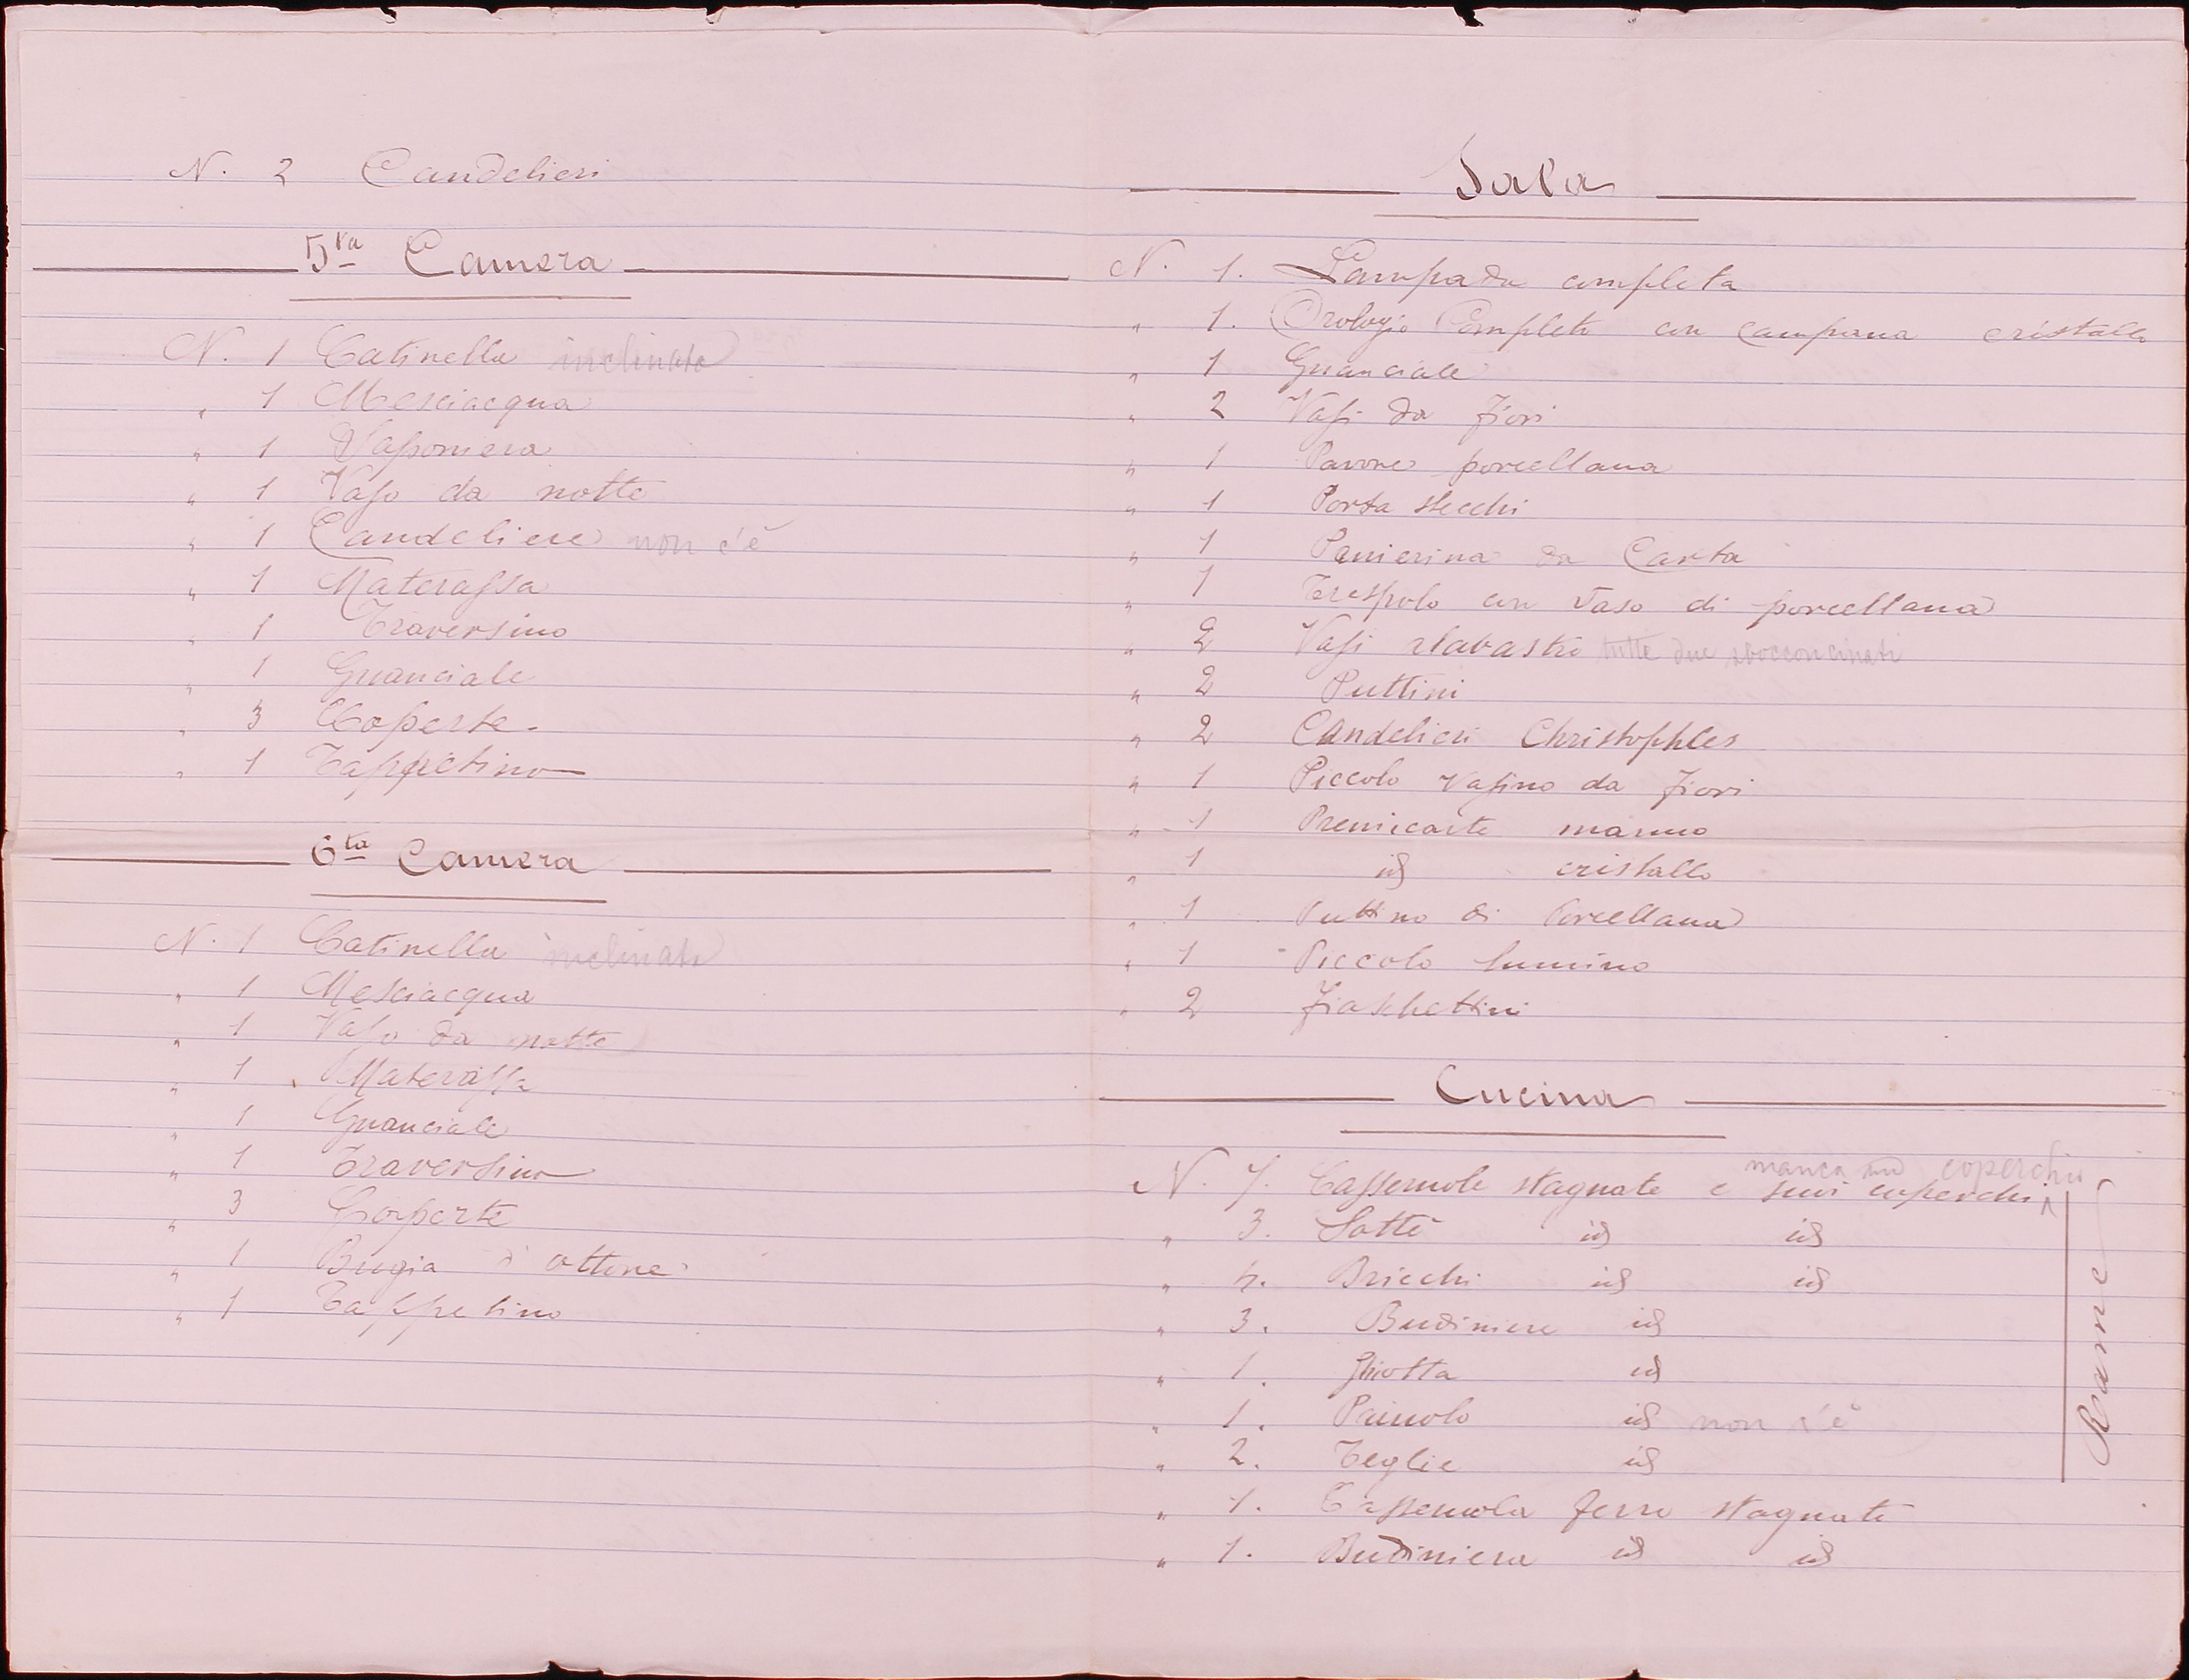 N. 2 Candelieri
5ta Camera
N. 1 Catinella inclinata
" 1 Mesciacqua
" 1 Saponiera
" 1 Vaso da notte
" 1 Candeliere non c'è
" 1 Materassa
" 1 Traversino
" 1 Guanciale
" 3 Coperte -
" 1 Tappetino
6ta Camera
N. 1 Catinella inclinata
" 1 Mesciacqua
" 1 Vaso da notte
" 1 Materassa
" 1 Guanciale
" 1 Traversino
" 3 Coperte
" 1 Bugia d'ottone
" 1 Tappetino
Sala
N. 1. Lampada completa
" 1. Orologio Completo con campana cristallo
" 1 Guanciale
" 2 Vasi da fiori
" 1 Pavone porcellana
" 1 Porta stecchi
" 1 Panierina da Carta
" 1 Trespolo con vaso di porcellana
" 2 Vasi alabastro tutte due sbocconcinati
" 2 Puttini
" 2 Candelieri Christophles
" 1 Piccolo vasino da fiori
" 1 Premicarte marmo
" 1 id cristallo
" 1 Puttino di Porcellana
" 1 Piccolo lumino
" 2 Fiaschettini
Cucina
manca un coperchio
N. 7. Casseruole stagnate e suoi coperchi
" 3. Sottè id id
" 4. Bricchi id id
" 3. Budiniere id
" 1. Ghiotta id
" 1. Paiuolo id non c'è
" 2. Teglie id
Rame
" 1. Casseruola ferro stagnato
" 1. Budiniera id id